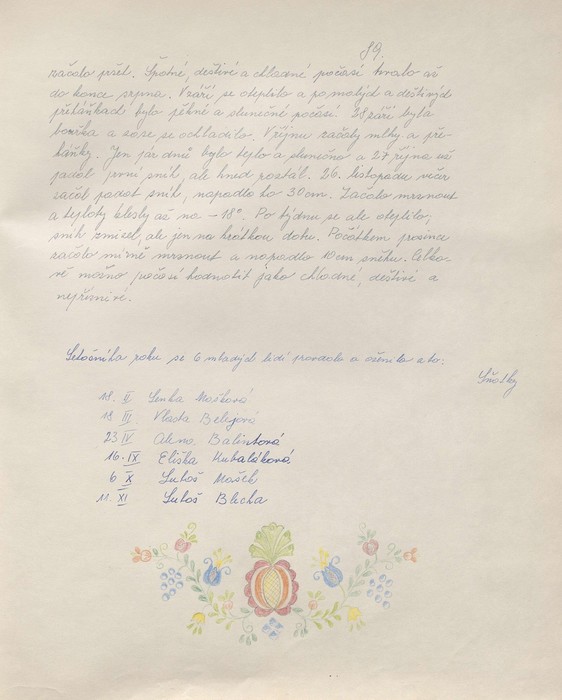 89.
začalo pršet. Špatné, deštivé a chladné počasí trvalo až
do konce srpna. V září se oteplilo a po malých a deštivých
přeháňkách bylo pěkné a slunečné počasí. 28 září byla
bouřka a zase se ochladilo. V říjnu začaly mlhy a pře-
háňky. Jen pár dnů bylo teplo a slunečno a 27. října už
padal první sníh, ale hned roztál. 26. listopadu večer
začal padat sníh, napadlo ho 30 cm. Začalo mrznout
a teploty klesly až na -18°. Po týdnu se ale oteplilo,
sníh zmizel, ale jen na krátkou dobu. Počátkem prosince
začalo mírně mrznout a napadlo 10 cm sněhu. Celko-
vě možno počasí hodnotit jako chladné, deštivé a
nepříznivé.
Letošního roku se 6 mladých lidí provdalo a oženilo a to:
Sňatky
18. II Lenka Mašková
18 III. Vlasta Belejová
23 IV Alena Balintová
16. IX Eliška Kubaláková
6 X Luboš Mašek
11. XI Luboš Blecha